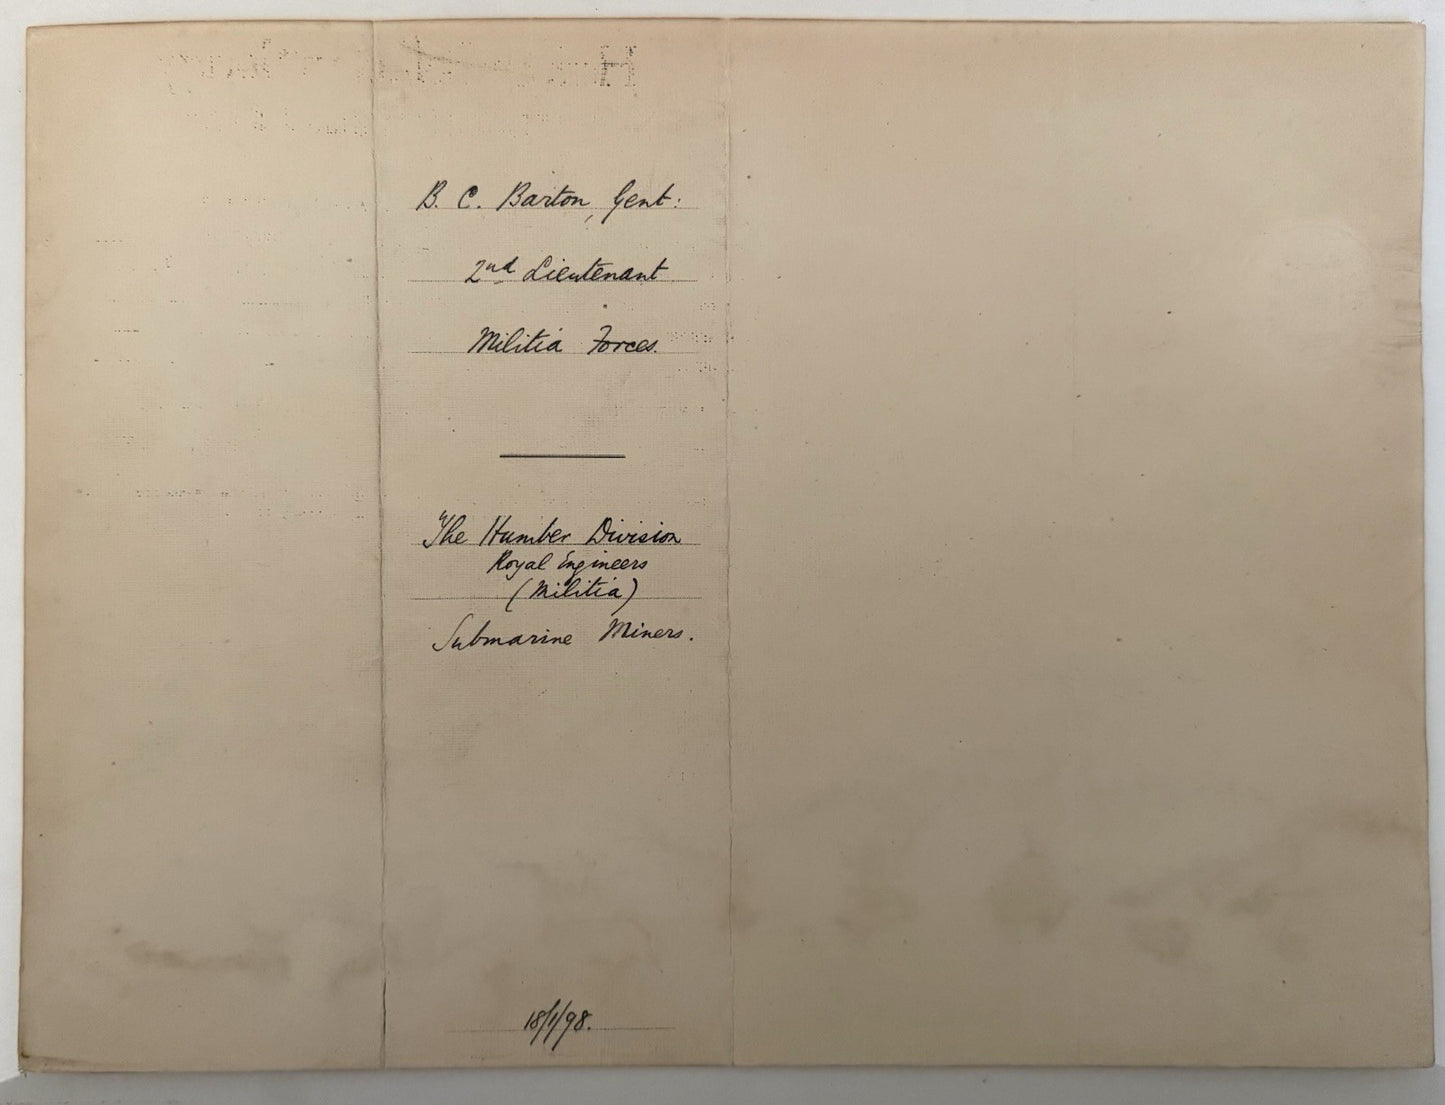 B. C. Barton, Gent:
2nd Lieutenant
Militia Forces.
The Humber Division
Royal Engineers
(Militia)
Submarine Miners.
18/1/98.